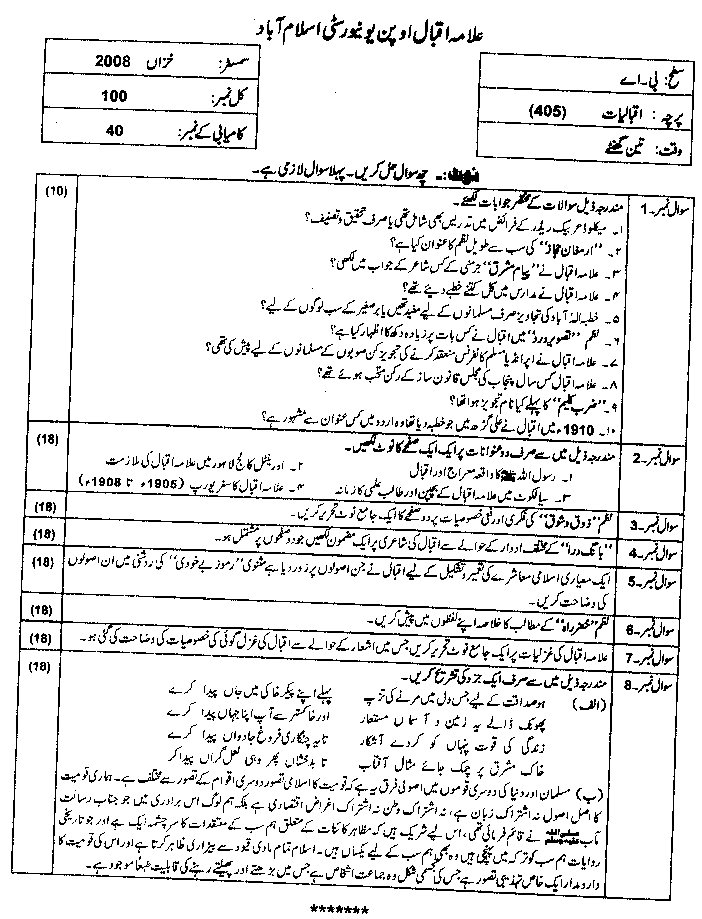 علامہ اقبال اوپن یونیورسٹی اسلام آباد
سطح: بی۔اے
پرچہ: اقبالیات (405)
وقت: تین گھنٹے
سمسٹر: خزاں 2008
کل نمبر: 100
کامیابی کے نمبر: 40
نوٹ:۔ چھ سوال حل کریں۔ پہلا سوال لازمی ہے۔
سوال نمبر۔1 مندرجہ ذیل سوالات کے مختصر جوابات لکھیے۔ (10)
۱۔ میکلوڈ عریبک ریڈر کے فرائض میں تدریس بھی شامل تھی یا صرف تحقیق و تصنیف؟
۲۔ "ارمغان حجاز" کی سب سے طویل نظم کا عنوان کیا ہے؟
۳۔ علامہ اقبال نے "پیام مشرق" جرمنی کے کس شاعر کے جواب میں لکھی؟
۴۔ علامہ اقبال نے مدارس میں کل کتنے خطبے دیے تھے؟
۵۔ خطبہ الہٰ آباد کی تجاویز صرف مسلمانوں کے لیے مفید تھیں یا برصغیر کے سب لوگوں کے لیے؟
۶۔ نظم "تصویر درد" میں اقبال نے کس بات پر زیادہ دکھ کا اظہار کیا ہے؟
۷۔ علامہ اقبال نے اپر انڈیا مسلم کانفرنس منعقد کرنے کی تجویز کن صوبوں کے مسلمانوں کے لیے پیش کی تھی؟
۸۔ علامہ اقبال کس سال پنجاب کی مجلس قانون ساز کے رکن منتخب ہوئے تھے؟
۹۔ "ضرب کلیم" کا پہلے کیا نام تجویز ہوا تھا؟
۱۰۔ 1910ء میں اقبال نے علی گڑھ میں جو خطبہ دیا تھا وہ اردو میں کس عنوان سے مشہور ہے؟
سوال نمبر۔2 مندرجہ ذیل میں سے صرف دو عنوانات پر ایک ایک صفحے کا نوٹ لکھیں۔ (18)
۱۔ رسول اللہ ﷺ کا واقعہ معراج اور اقبال ۲۔ اورینٹل کالج لاہور میں علامہ اقبال کی ملازمت
۳۔ سیالکوٹ میں علامہ اقبال کے بچپن اور طالب علمی کا زمانہ ۴۔ علامہ اقبال کا سفر یورپ (1905ء تا 1908ء)
سوال نمبر۔3 نظم "ذوق و شوق" کی فکری اور فنی خصوصیات پر دو صفحے کا ایک جامع نوٹ تحریر کریں۔ (18)
سوال نمبر۔4 "بانگ درا" کے مختلف ادوار کے حوالے سے اقبال کی شاعری پر ایک مضمون لکھیں جو دو صفحوں پر مشتمل ہو۔ (18)
سوال نمبر۔5 ایک معیاری اسلامی معاشرے کی تعمیر و تشکیل کے لیے اقبال نے جن اصولوں پر زور دیا ہے مثنوی "رموز بے خودی" کی روشنی میں ان اصولوں (18)
کی وضاحت کریں۔
سوال نمبر۔6 نظم "خضر راہ" کے مطالب کا خلاصہ اپنے لفظوں میں پیش کریں۔ (18)
سوال نمبر۔7 علامہ اقبال کی غزلیات پر ایک جامع نوٹ تحریر کریں جس میں اشعار کے حوالے سے اقبال کی غزل گوئی کی خصوصیات کی وضاحت کی گئی ہو۔ (18)
سوال نمبر۔8 مندرجہ ذیل میں سے صرف ایک جزو کی تشریح کریں۔ (18)
(الف) ہو صداقت کے لیے جس دل میں مرنے کی تڑپ پہلے اپنے پیکر خاکی میں جاں پیدا کرے
پھونک ڈالے یہ زمین و آسماں مستعار اور خاکستر سے آپ اپنا جہاں پیدا کرے
زندگی کی قوت پنہاں کو کر دے آشکار تا یہ چنگاری فروغ جاوداں پیدا کرے
خاک مشرق پر چمک جائے مثال آفتاب تا بدخشاں پھر وہی لعل گراں پیدا کرے
(ب) مسلمان اور دنیا کی دوسری قوموں میں اصولی فرق یہ ہے کہ قومیت کا اسلامی تصور دوسری اقوام کے تصور سے مختلف ہے۔ ہماری قومیت
کا اصل اصول نہ اشتراک زبان ہے، نہ اشتراک وطن نہ اشتراک اغراض اقتصادی ہے بلکہ ہم لوگ اس برادری میں جو جناب رسالت
مآب ﷺ نے قائم فرمائی تھی، اس لیے شریک ہیں کہ مظاہر کائنات کے متعلق ہم سب کے معتقدات کا سرچشمہ ایک ہے اور جو تاریخی
روایات ہم سب کو ترکہ میں پہنچی ہیں وہ بھی ہم سب کے لیے یکساں ہیں۔ اسلام تمام مادی قیود سے بیزاری ظاہر کرتا ہے اور اس کی قومیت کا
دارومدار ایک خاص تہذیبی تصور ہے جس کی تجسیمی شکل وہ جماعت اشخاص ہے جس میں بڑھنے اور پھیلتے رہنے کی قابلیت طبعاً موجود ہے۔
*******